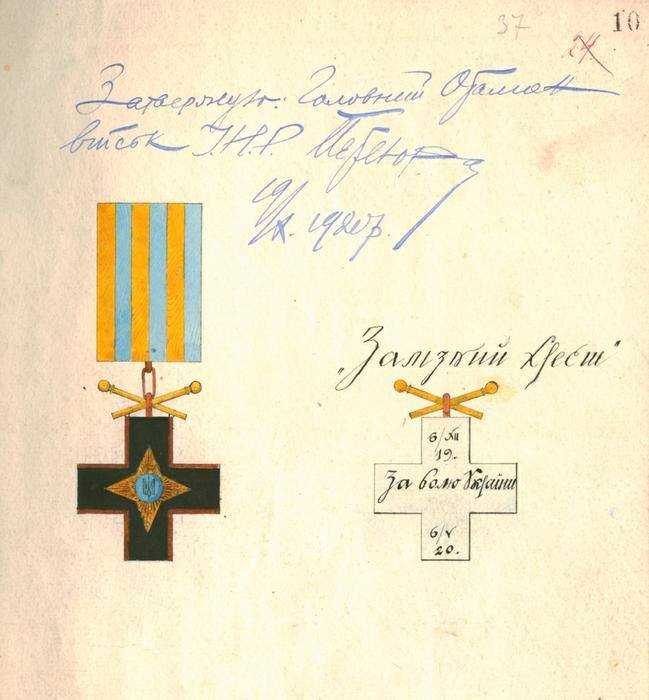 37
24
10
Затверджую: Головний Отаман
військ У.Н.Р. Петлюра
19/X. 1920 р.
"Залізний Хрест"
6/XII
19.
За волю України
6/V
20.